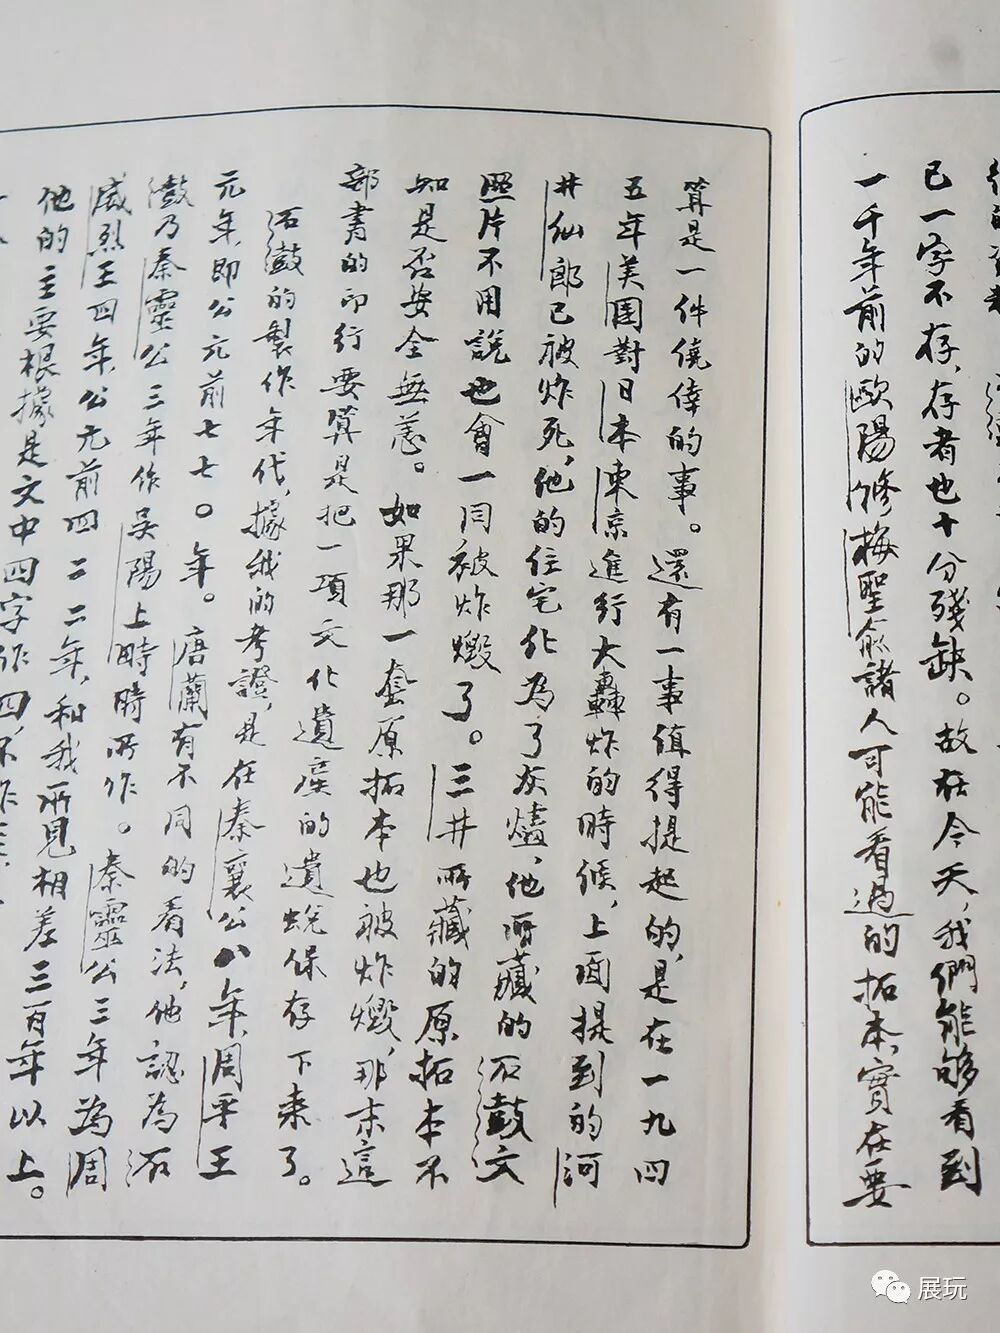 已一字不存，存者也十分殘缺。故在今天，我們能够看到
一千年前的歐陽修梅聖俞諸人可能看過的拓本，實在要
算是一件僥倖的事。還有一事值得提起的，是在一九四
五年美國對日本東京進行大轟炸的時候，上面提到的河
井仙郎已被炸死，他的住宅化為了灰燼，他所藏的石鼓文
照片不用說也會一同被炸燬了。三井所藏的原拓本不
知是否安全無恙。如果那一套原拓本也被炸燬，那末這
部書的印行要算是把一項文化遺產的遺蛻保存下來了。
石鼓的製作年代，據我的考證，是在秦襄公八年，周平王
元年，即公元前七七〇年。唐蘭有不同的看法，他認為石
鼓乃秦靈公三年作吳陽上畤時所作。秦靈公三年為周
威烈王四年，公元前四二二年，和我所見相差三百年以上。
他的主要根據是文中四字作四，不作亖，
展玩